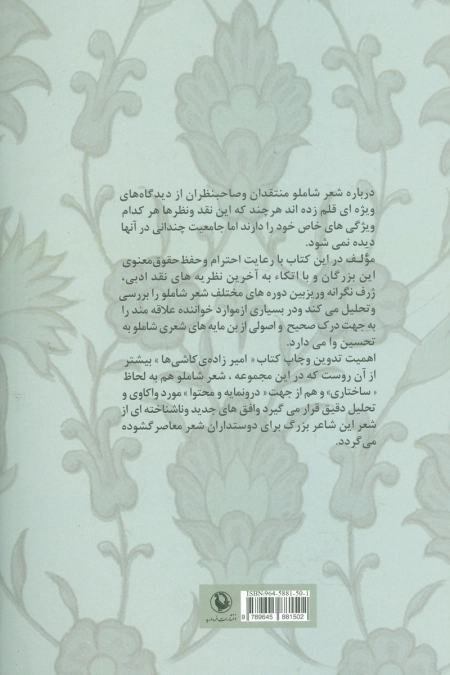 درباره شعر شاملو منتقدان وصاحبنظران از دیدگاه‌های
ویژه ای قلم زده اند هرچند که این نقد ونظرها هر کدام
ویژگی های خاص خود را دارند اما جامعیت چندانی در آنها
دیده نمی شود.
مؤلف در این کتاب با رعایت احترام وحفظ حقوق معنوی
این بزرگان و با اتکاء به آخرین نظریه های نقد ادبی،
ژرف نگرانه وریزبین دوره های مختلف شعر شاملو را بررسی
وتحلیل می کند ودر بسیاری ازموارد خواننده علاقه مند را
به جهت درک صحیح و اصولی از بن مایه های شعری شاملو به
تحسین وا می دارد.
اهمیت تدوین وچاپ کتاب« امیر زاده‌ی کاشی‌ها » بیشتر
از آن روست که در این مجموعه ، شعر شاملو هم به لحاظ
« ساختاری» و هم از جهت «درونمایه و محتوا » مورد واکاوی و
تحلیل دقیق قرار می گیرد وافق های جدید وناشناخته ای از
شعر این شاعر بزرگ برای دوستداران شعر معاصر گشوده
می گردد.
ISBN-964-5881-50-1
9 789645 881502
انتشارات مروارید